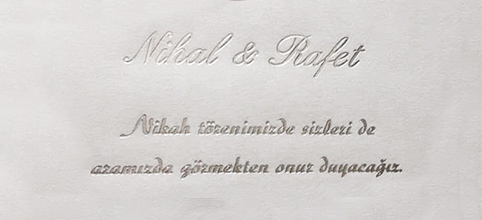 Nihal & Rafet
Nikah törenimizde sizleri de
aramızda görmekten onur duyacağız.